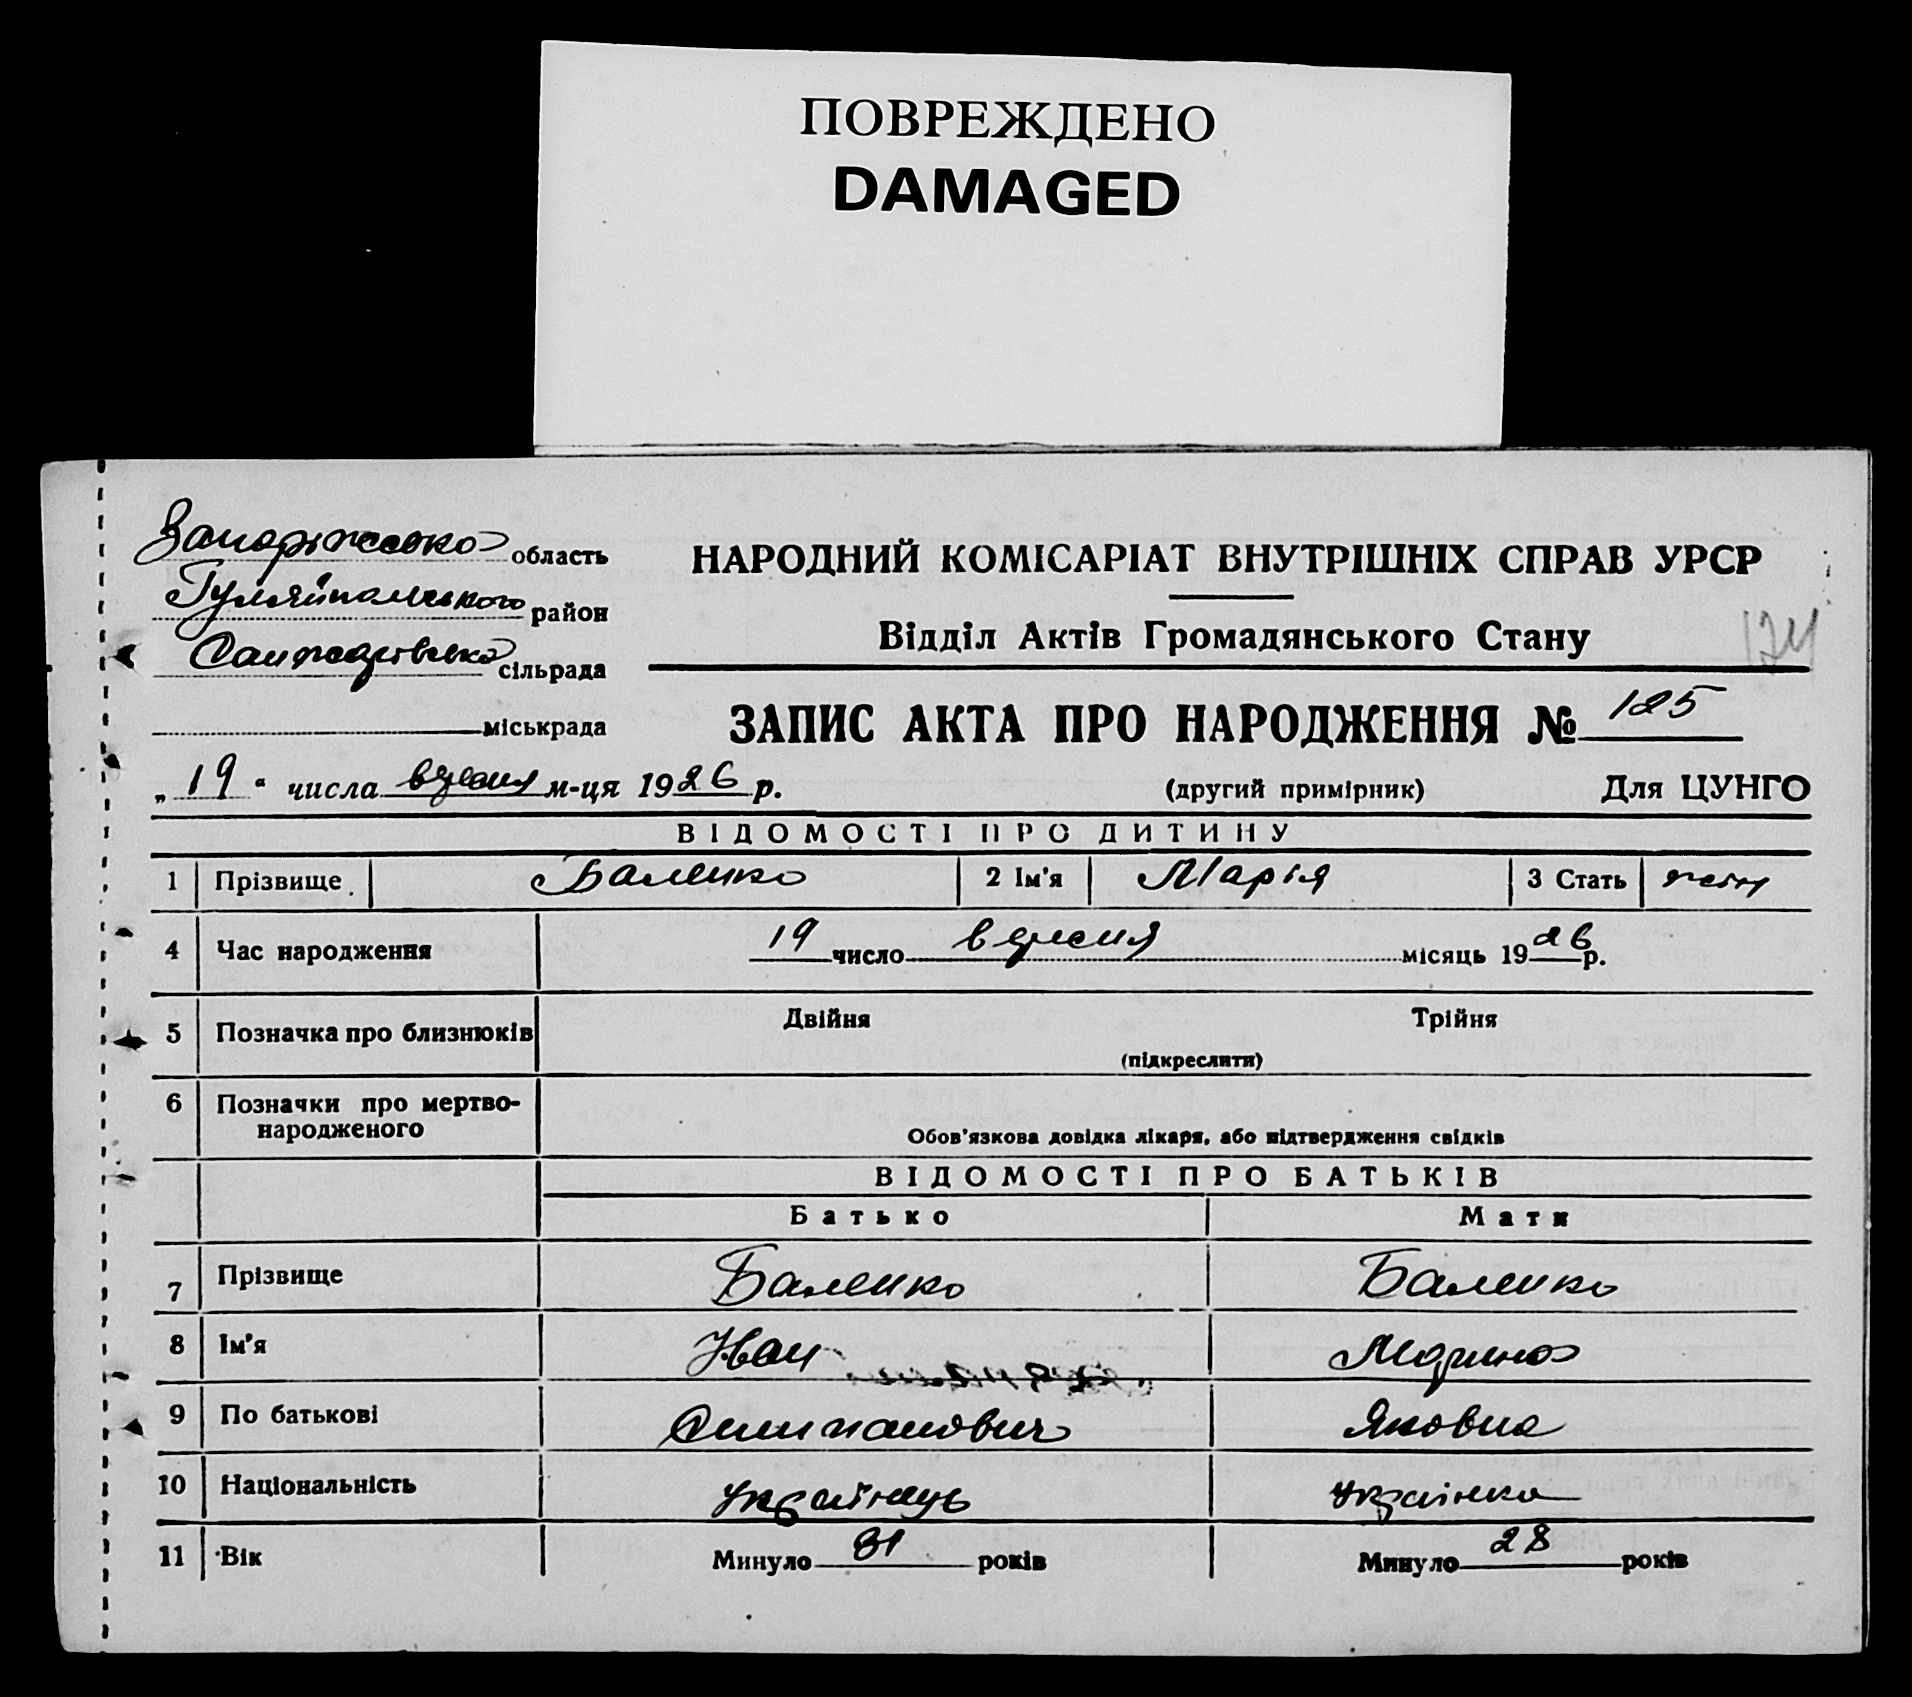 ПОВРЕЖДЕНО
DAMAGED
Запоріжсько область
Гуляйпольського район
Санжарівсько сільрада
міськрада
НАРОДНИЙ КОМІСАРІАТ ВНУТРІШНІХ СПРАВ УРСР
Відділ Актів Громадянського Стану
124
ЗАПИС АКТА ПРО НАРОДЖЕННЯ № 125
„ 19 “ числа вересня м-ця 1926 р.
(другий примірник) Для ЦУНГО
ВІДОМОСТІ ПРО ДИТИНУ
1 Прізвище Баленко 2 Ім'я Марія 3 Стать жін
4 Час народження 19 число вересня місяць 1926 р.
5 Позначка про близнюків Двійня Трійня
(підкреслити)
6 Позначки про мертво-
народженого
Обов'язкова довідка лікаря, або підтвердження свідків
ВІДОМОСТІ ПРО БАТЬКІВ
Батько Мати
7 Прізвище Баленко Баленко
8 Ім'я Иван Марина
9 По батькові Яковна
10 Національність Українець Українка
11 Вік Минуло 31 років Минуло 28 років